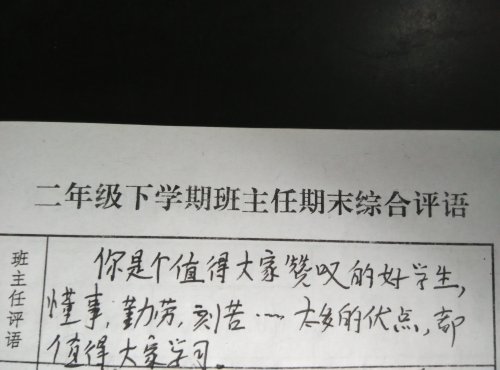 二年级下学期班主任期末综合评语
班主任评语
你是个值得大家赞叹的好学生,
懂事,勤劳,刻苦……太多的优点,都
值得大家学习。